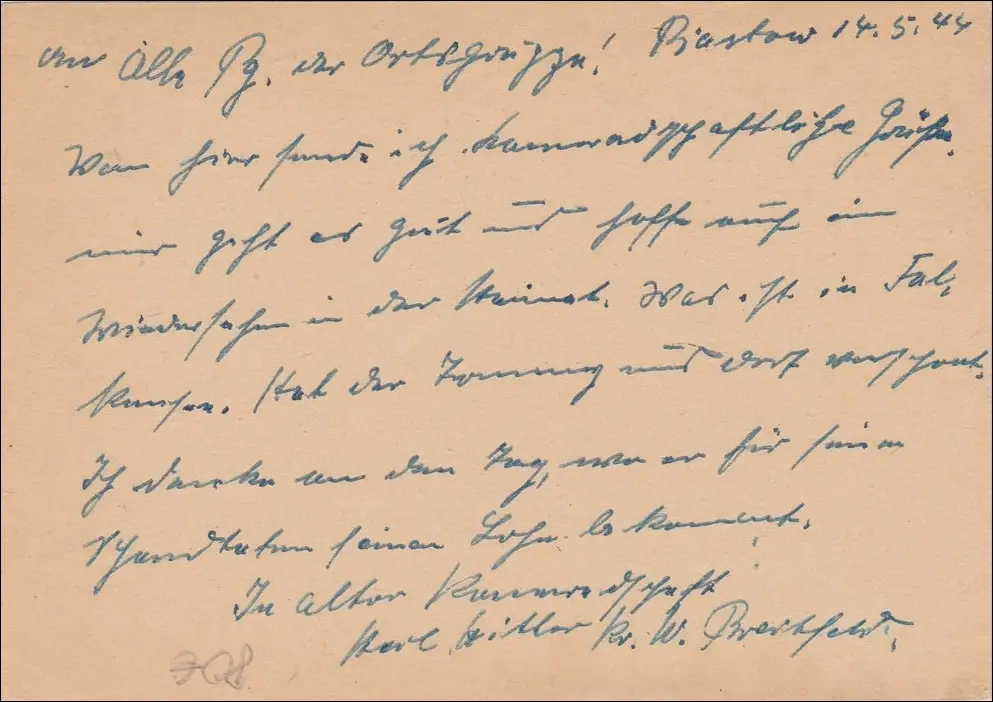 An Alle Pg. der Ortsgruppe! Piastow 14.5.44
Von hier sende ich Kameradschaftliche Grüße.
mir geht es gut und hoffe auf ein
Wiedersehn in der Heimat. Was ist in Fal-
kensee. Hat der Tommy uns dort verschont.
Ich denke an den Tag, wo er für seine
Schandtaten seinen Lohn bekommt.
In alter Kameradschaft
Heil Hitler Kr. W.